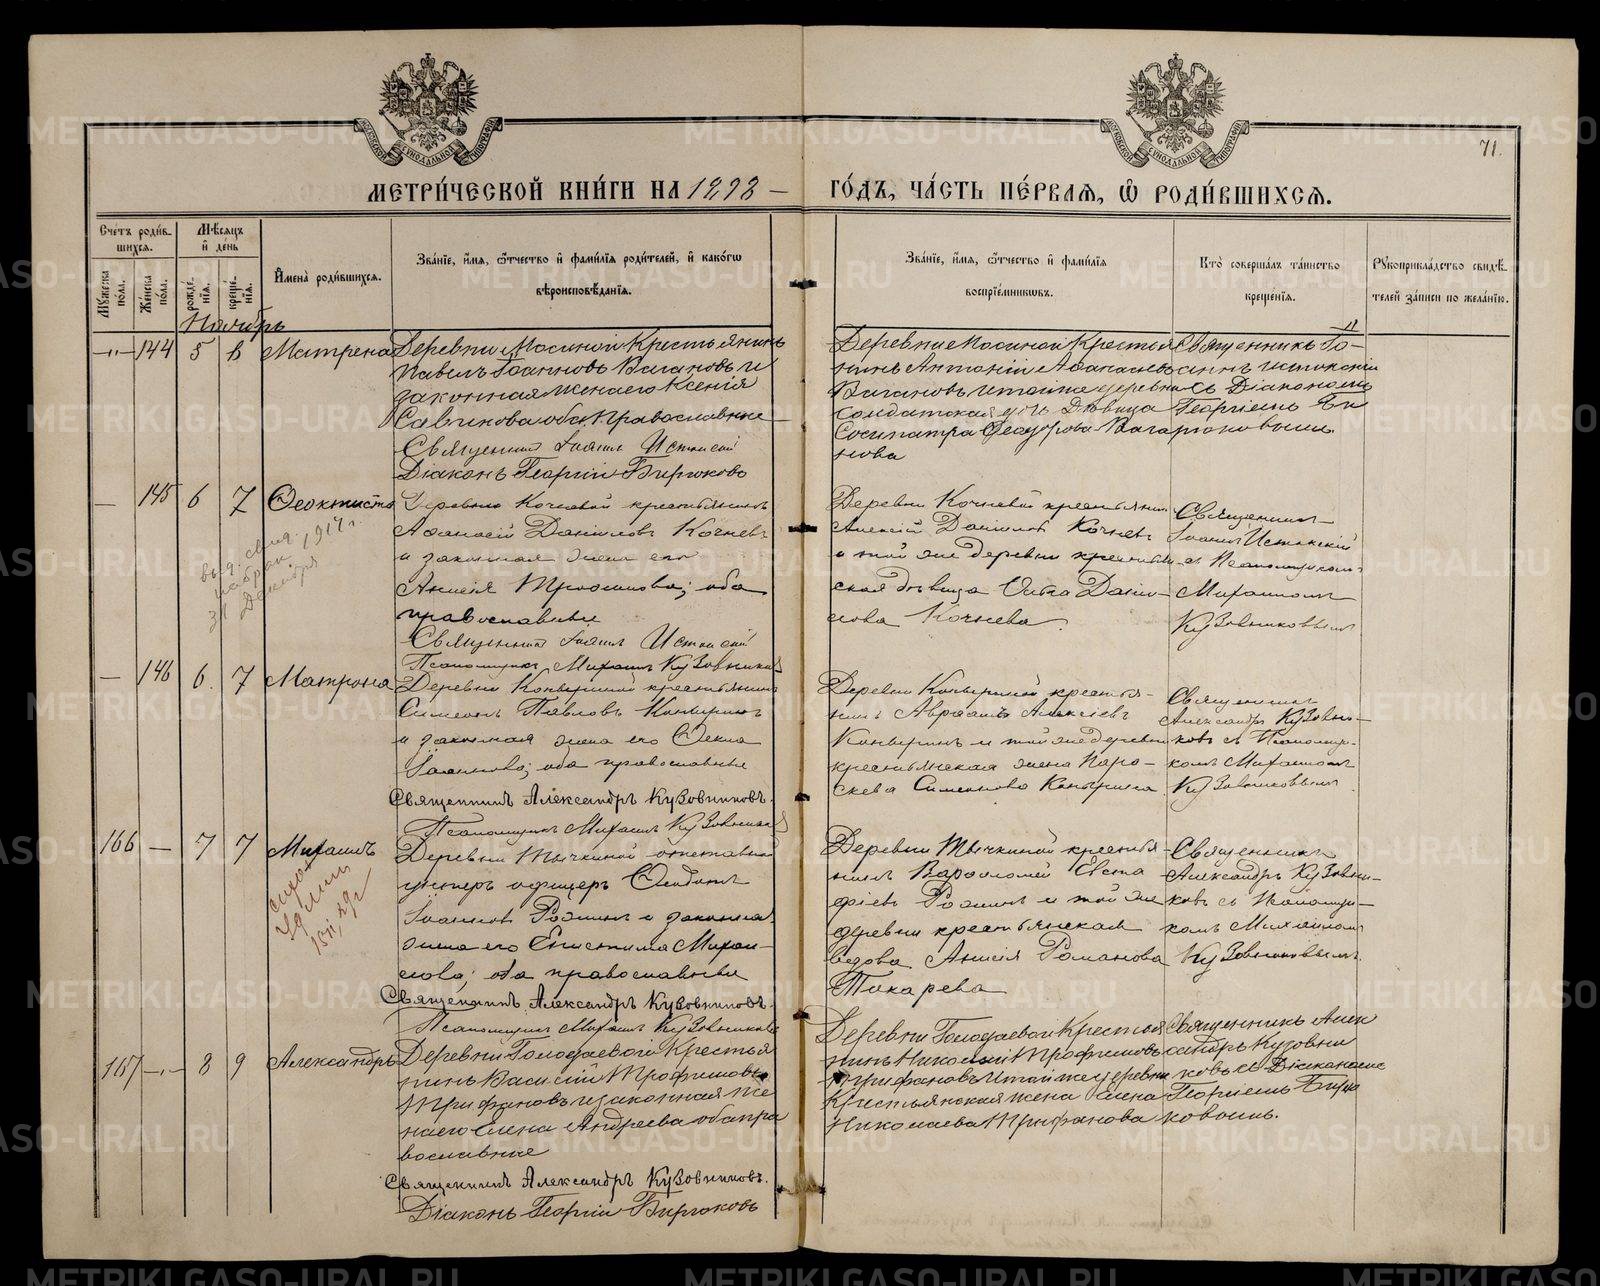 71.
МОСКОВСКОЙ СУНОДАЛЬНОЙ ТИПОГРАФІИ
МОСКОВСКОЙ СУНОДАЛЬНОЙ ТИПОГРАФІИ
МЕТРИ́ЧЕСКОЙ КНИ́ГИ НА 1898 – ГО́ДЪ, ЧА́СТЬ ПЕ́РВАЯ, Ѽ РОДИ́ВШИХСЯ.
Сче́тъ роди́в-
шихся.
Му́жеска по́ла.
Же́нска по́ла.
Мѣ́сяцъ
и҆ де́нь
рожде́-
нїя.
креще́-
нїя.
И҆мена̀ роди́вшихся.
Зва́нїе, и҆́мя, ѻ҆́тчество и҆ фами́лїя роди́телей, и҆ како́гѡ
вѣроисповѣ́данїя.
Зва́нїе, и҆́мя, ѻ҆́тчество и҆ фами́лїя
воспрїе́мникѡвъ.
Кто̀ соверша́лъ та́инство
креще́нїя.
Рꙋкоприкла́дство свидѣ́-
телей за́писи по жела́нїю.
Ноябрь
–"– 144 5 6 Матрена
Деревни Мосиной Крестьянинъ
Павелъ Іоанновъ Вагановъ и
законная жена его Ксенія
Саввинова оба Православные
Священникъ Іоаннъ
Діаконъ Георгій Бирюковъ
Деревни Мосиной Крестья
нинъ Антоній Афанасьевъ
Вагановъ и тойже деревни
Солдатская дочь Дѣвица
Сосипатра Ѳеодорова Вага
нова
Священникъ Іо-
аннъ
съ Діакономъ
Георгіемъ Би
рюковымъ
– 145 6 7 Ѳеоктиста
1917 г.
31 Декабря
Деревни Кочневой крестьянинъ
Аѳанасій Даніиловъ Кочневъ
и законная жена его
Анисія Трофимова; оба
православные
Священникъ Іоаннъ
Псаломщикъ Михаилъ Кузовниковъ
Деревни Кочневой крестьянинъ
Алексій Даніиловъ Кочневъ
и той же деревни крестьян
ская дѣвица Ольга Дані-
лова Кочнева.
Священникъ
Іоаннъ
съ Псаломщиком
Михаиломъ
Кузовниковымъ
– 146 6. 7 Матрона
Деревни крестьянинъ
Симеонъ Павловъ
и законная жена его Ѳекла
Іоаннова; оба православные
Священникъ Александръ Кузовниковъ.
Псаломщикъ Михаилъ Кузовниковъ
Деревни крестья-
нинъ Авраамъ Алексіевъ
и той же деревни
крестьянская жена Пара-
скева Симеонова
Священникъ
Александръ Кузовни-
ковъ съ Псаломщи-
комъ Михаиломъ
Кузовниковымъ.
166 – 7 7 Михаилъ
Деревни Тычкиной отставной
унтеръ офицеръ Ѳеодотъ
Іоанновъ и законная
жена его Епистима Михаи-
лова; оба православные
Священникъ Александръ Кузовниковъ.
Псаломщикъ Михаилъ Кузовниковъ
Деревни Тычкиной крестья-
нинъ Варѳоломей Евста
фіевъ и той же
деревни крестьянская
вдова Анисія Романова
Токарева
Священникъ
Александръ Кузовни-
ковъ съ Псаломщи-
комъ Михаиломъ
Кузовниковымъ.
167 –"– 8 9 Александръ
Деревни Голодаевой Крестья
нинъ Василій Трофимовъ
Трифановъ и законная же
на его Елена Андреева оба пра
вославные
Священникъ Александръ Кузовниковъ.
Діаконъ Георгій Бирюковъ
Деревни Голодаевой Крестья
нинъ Николай Трофимовъ
Трифановъ и тойже деревни
Крестьянская жена Елена
Николаева Трифанова
Священникъ Алек
сандръ Кузовни
ковъ съ Діакономъ
Георгіемъ Бирю
ковымъ.
METRIKI.GASO-URAL.RU